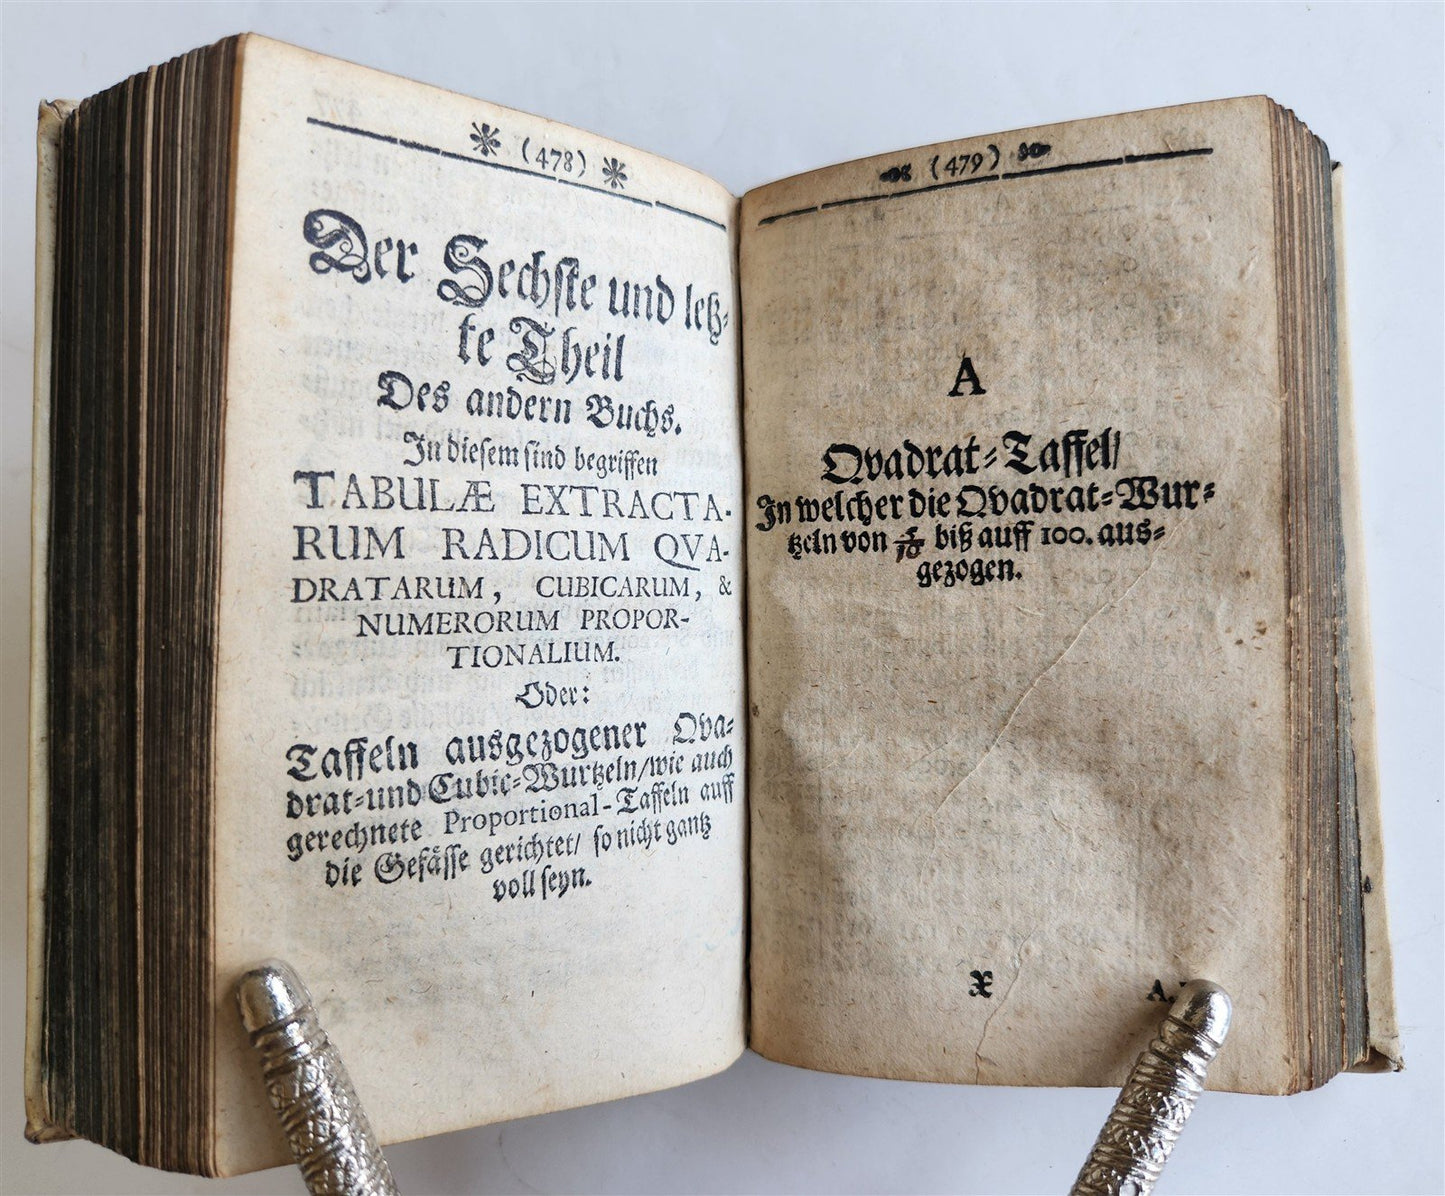 (478)
Der Sechste und letz-
te Theil
Des andern Buchs.
In diesem sind begriffen
TABULÆ EXTRACTA-
RUM RADICUM QVA-
DRATARUM, CUBICARUM, &
NUMERORUM PROPOR-
TIONALIUM.
Oder:
Taffeln ausgezogener Qva-
drat-und Cubic-Wurtzeln/wie auch
gerechnete Proportional-Taffeln auff
die Gefässe gerichtet/ so nicht gantz
voll seyn.
(479)
A
Qvadrat-Taffel/
In welcher die Qvadrat-Wur-
tzeln von biß auff 100. aus-
gezogen.
X
A.